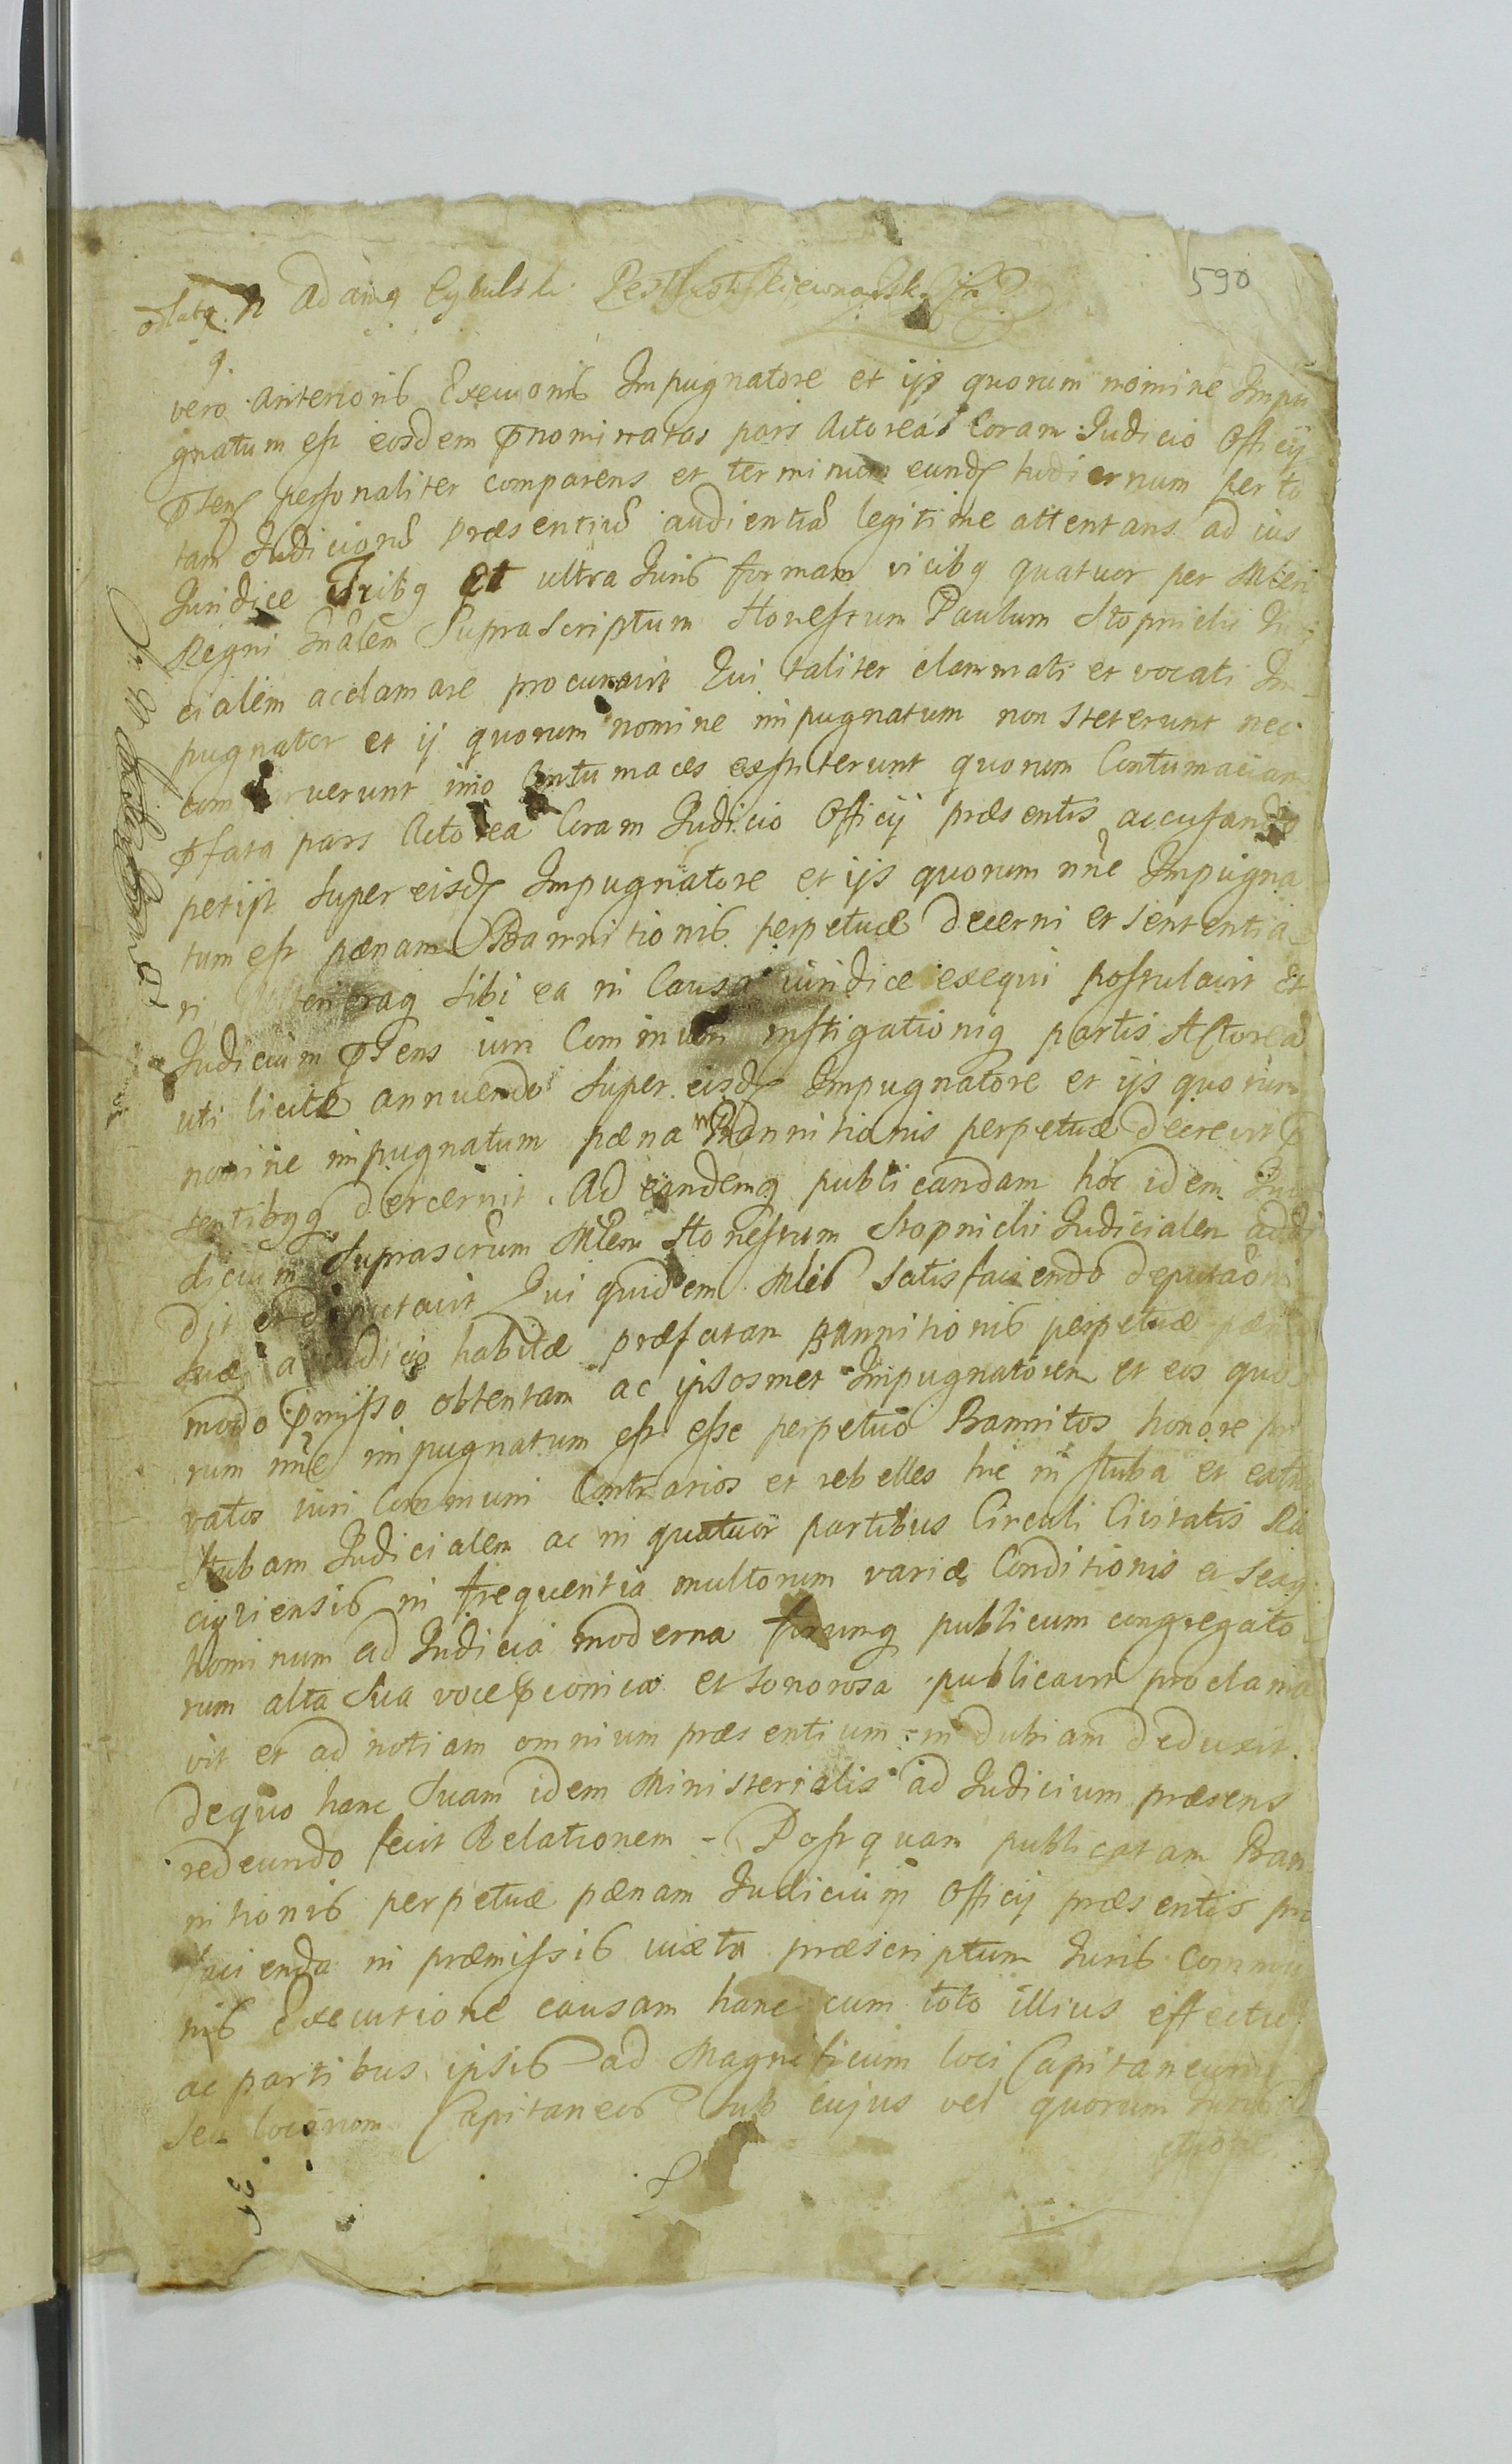 590
vero Anterioris Exeuonis Impugnatore et ijs quorum nomine Impu
gnatum est eosdem pnominatas pars Actorea Coram Judicio Officij
psens personaliter comparens et terminum eund hodiernum per to
tam Judiciorũ præsentiũ audientiã legitime attentans ad ius
Juridice Tribq Et ultra Juris formam vicibq quatuor per Mlem
Regni Gnãlem Suprascriptum Honestum Paulum Stopnicki Judi
cialem aclamare procuravit Qui taliter clammati et vocati Im-
pugnator et ij quorum nomine impugnatum non steterunt nec
comparuerunt imo Contumaces exstiterunt quorum Contumaciam
pfata pars Actorea Coram Judicio Officij præsentis accusando
petijt super eisd Impugnatore et ijs quorum nñe Impugna
tum est pænam Bannitionis perpetuæ decerni et sententia
ri sibi ea in Causa iuridice exequi postulavit Et
Judicium psens iuri Communi instigationiq partis Actoreæ
uti licitæ annuendo super eisd Impugnatore et ijs quorum
nomine impugnatum pæna m Bannitionis perpetuæ decrevit p
sentibqq decernit. Ad eandemq publicandam hoc idem Ju
dicium Suprascrũm Mlem Honestum Stopnicki Judicialem addi
dit et deputavit Qui quidem Mlis satisfaciendo deputaõni
suæ a Judicio habitæ præfatam Bannitionis perpetuæ pæn
modo pmisso obtentam ac ipsosmet Impugnatorem et eos quo
rum nñe impugnatum est esse perpetuo Bannitos honore pri
vatos iuri Communi Contrarios et rebelles hic in stuba et extra
stubam Judicialem ac in quatuor partibus Circuli Civitatis Ra
ciąziensis in frequentia multorum variæ Conditionis et sexq
hominum ad Judicia moderna forumq publicum congregato
rum alta sua voce pconica et sonorosa publicavit proclama
vit et ad notiam omnium præsentium indubiam deduxit.
De quo hanc suam idem Ministerialis ad Judicium præsens
redeundo fecit Relationem - Post quam publicatam Ban
nitionis perpetuæ pænam Judicium Officij præsentis pro
facienda in præmissis iuxta præscriptum Juris Commu
nis Executione causam hanc cum toto illius effectu
ac partibus ipsis ad Magnificum loci Capitaneum
seu locorum Capitaneos sub cujus vel quorum Jurisdi
ctione